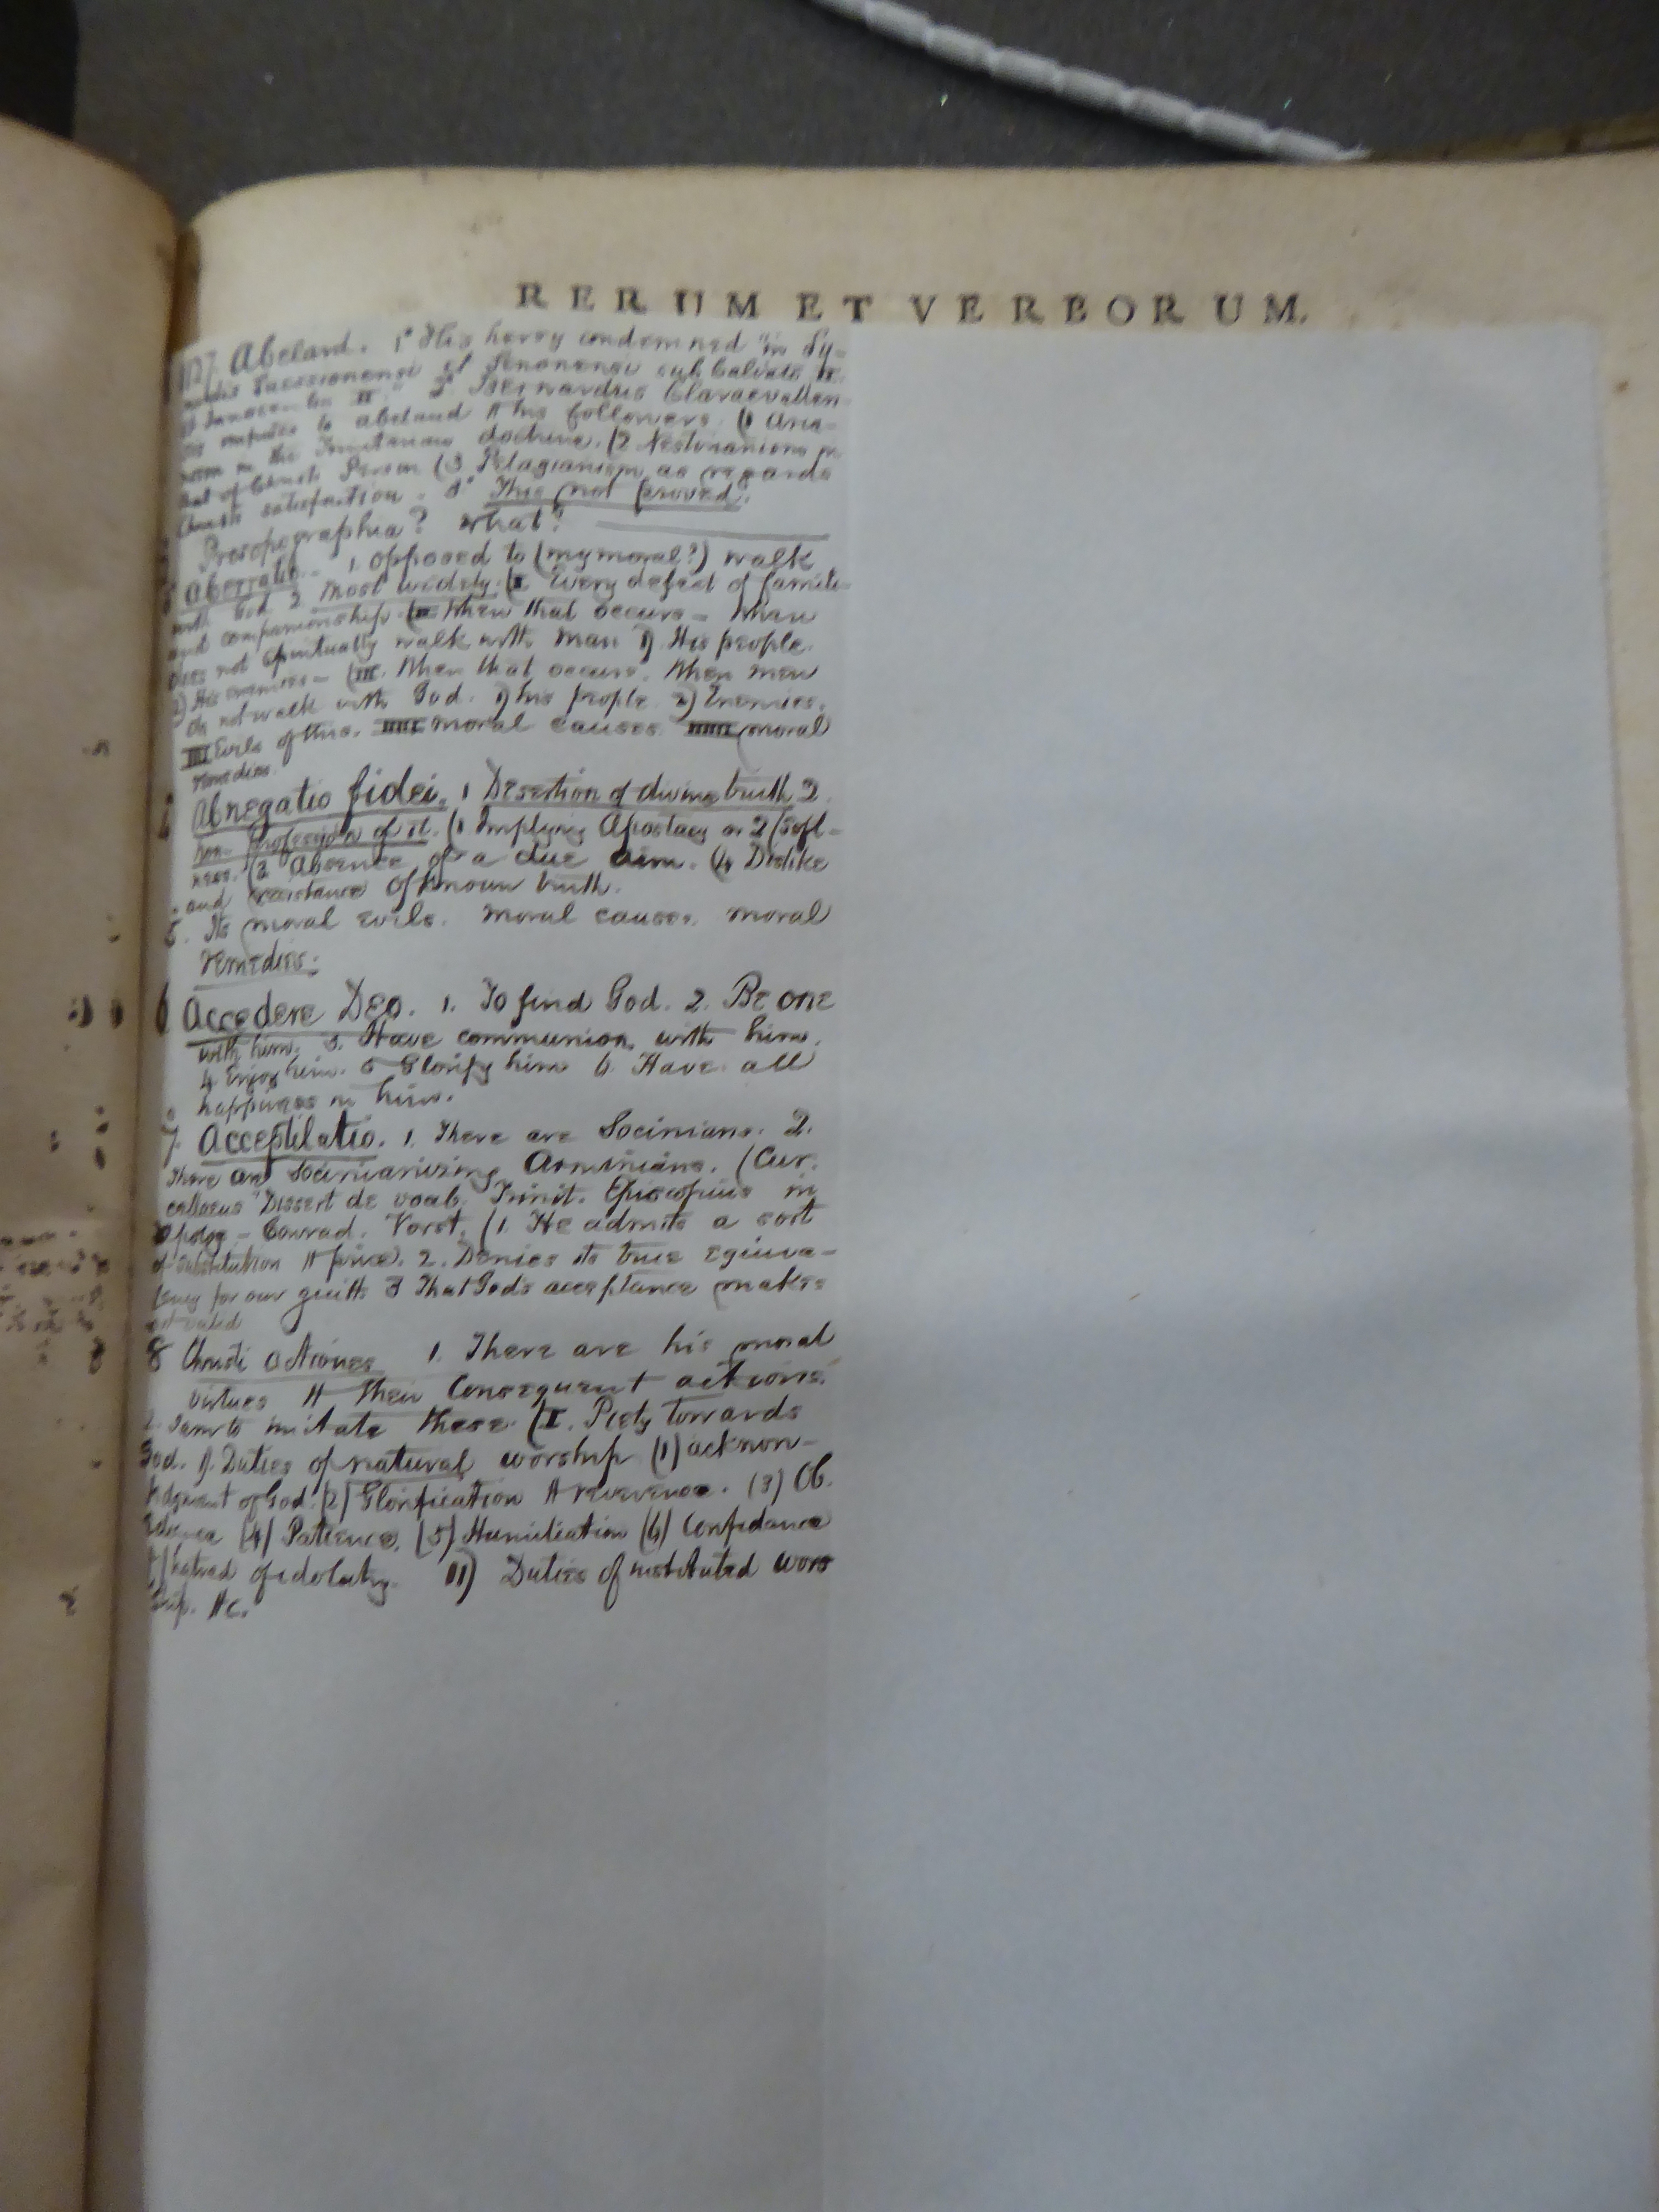 RERUM ET VERBORUM.
Abelard. 1° His heresy condemned "in Sy-
nodis Suessionensi et Senonensi sub Calixto II.
et Innocentio II." 2° Bernardus Claraevallen
sis imputes to abelard & his followers. (1 Aria-
nism in the Trinitarian doctrine. (2 Nestorianism in
that of Christ's Person (3 Pelagianism as regards
Christ's satisfaction. 3° This not proved.
Prosopographia? What?
Aberratio. 1. opposed to (my moral?) walk
with God 2 most widely. (I Every defect of famili-
and companionship. (II When that occurs – When
does not Spiritually walk with man 1) His people.
2) His enemies – (III. When that occurs. When men
do not walk with God. 1) his people 2) Enemies.
III Evils of this. IIII moral causes IIIII moral
remedies.
Abnegatio fidei. 1 Desertion of divine truth 2
non-Profession of it. (1 Implying Apostacy or 2 (Soft-
ness. (3 Absence of a due aim. (4 Dislike
and resistance of known truth.
5. Its moral evils. Moral causes. moral
remedies.
6 Accedere Deo. 1. To find God. 2. Be one
with him. 3. Have communion with him.
4 Enjoy him. 5 Glorify him 6. Have all
happiness in him.
7. Acceptilatio. 1. There are Socinians. 2.
There are Socinianizing Arminians. (Cur.
cellaeus "Dissert de vocab. Trinit. Episcopius in
Apolog – Conrad. Vorst. (1. He admits a sort
of substitution & price. 2. Denies its true equiva-
lency for our guilt 3 That God's acceptance makes
it valid
8 Christi actiones 1. There are his moral
virtues & their Consequent actions.
2. I am to imitate these. (I. Piety towards
God. 1). Duties of natural worship (1) acknow-
ledgment of God. (2) Glorification & reverence. (3) Ob.
edience (4) Patience. (5) Humiliation (6) Confidence
hatred of idolatry. II) Duties of instituted wor
ship. &c.